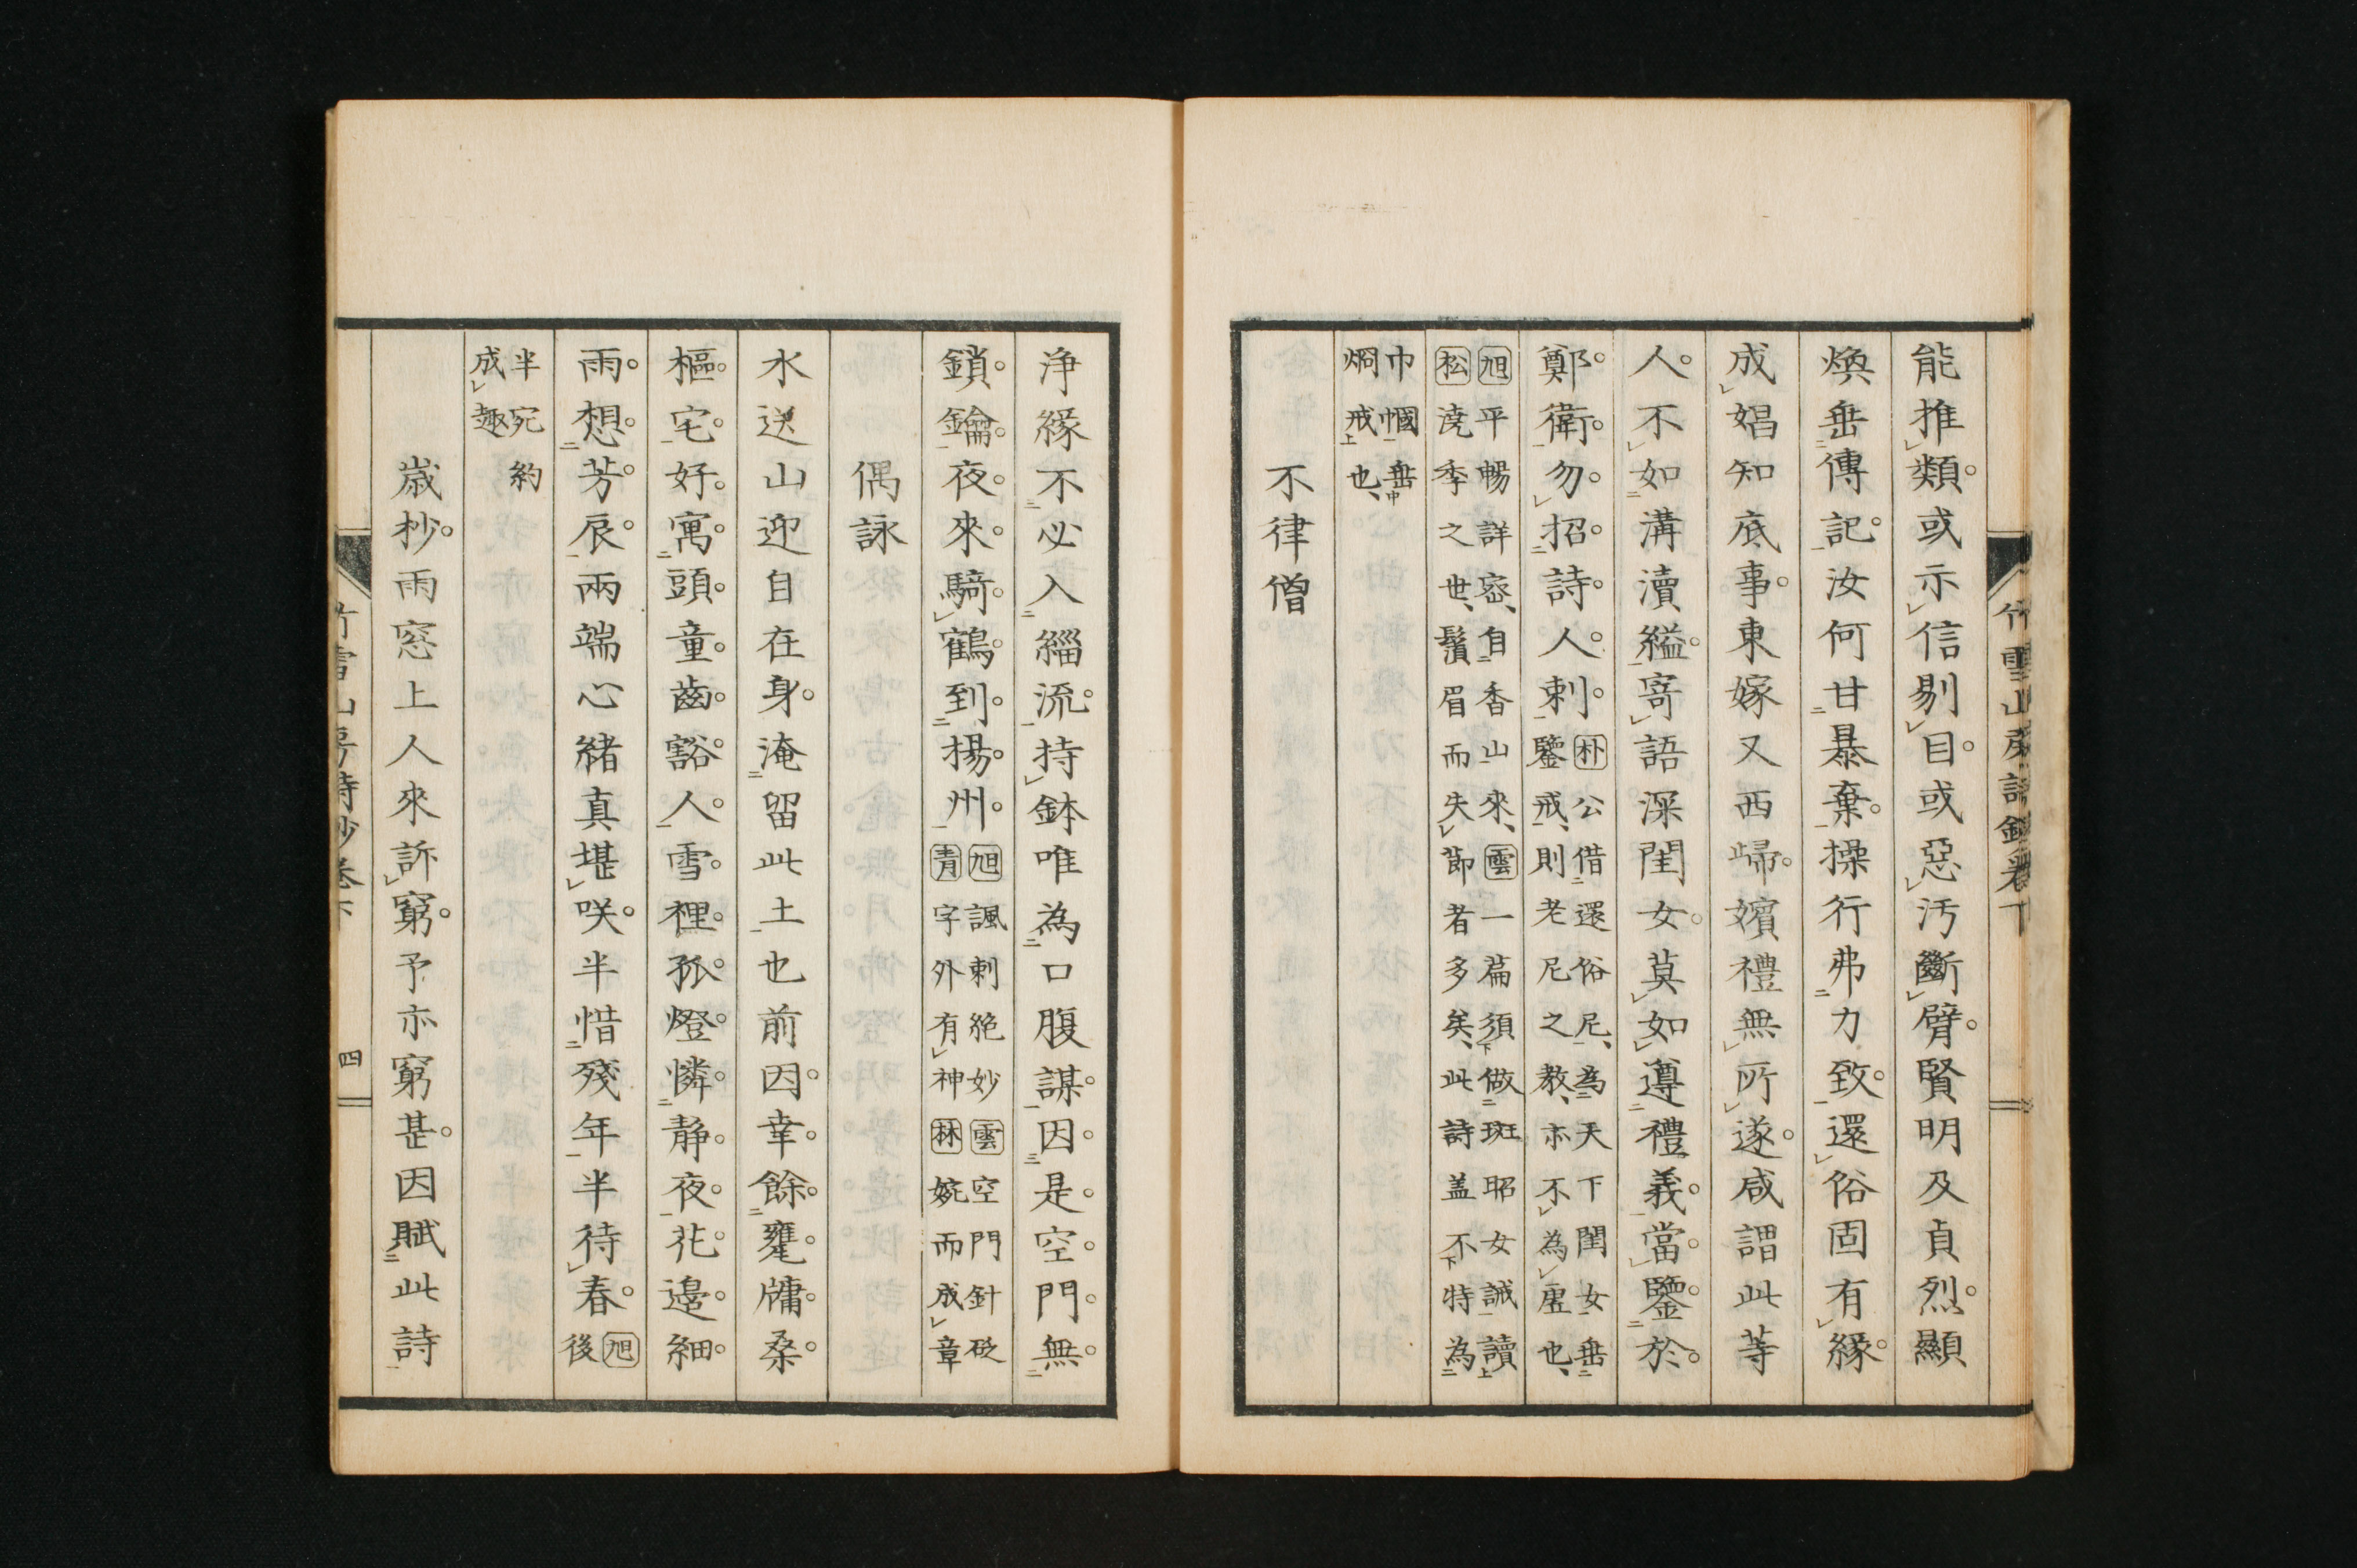 竹雪山房詩鈔卷下
能推類。或示信剔目。或惡汚斷臂。賢明及貞烈。顯
煥垂傳記。汝何甘暴棄。操行弗力致。還俗固有緣。
成娼知底事。東嫁又西歸。嬪禮無所遂。咸謂此等
人。不如溝瀆縊。寄語深閨女。莫如遵禮義。當鑒於
鄭衛。勿招詩人刺。朴公借還俗尼、為天下閨女垂
鑒戒、則老尼之教、亦不為虛也、
旭平暢詳密、自香山來、雲一篇須做班昭女誡讀
松澆季之世、鬚眉而失節者多矣、此詩盖不特為
巾幗垂
烱戒也、
不律僧
浄緣不必入緇流。持鉢唯為口腹謀。因是空門無
鎖鑰。夜來騎鶴到揚州。旭諷刺絕妙雲空門針砭
青字外有神林婉而成章
偶詠
水送山迎自在身。淹留此土也前因。幸餘甕牖桑
樞宅。好寓頭童齒豁人。雪裡孤燈憐静夜。花邊細
雨想芳辰。兩端心緒真堪咲。半惜殘年半待春。旭
後
半宛約
成趣
歲杪。雨窓上人來訴窮。予亦窮甚。因賦此詩
竹雪山房詩鈔卷下
四